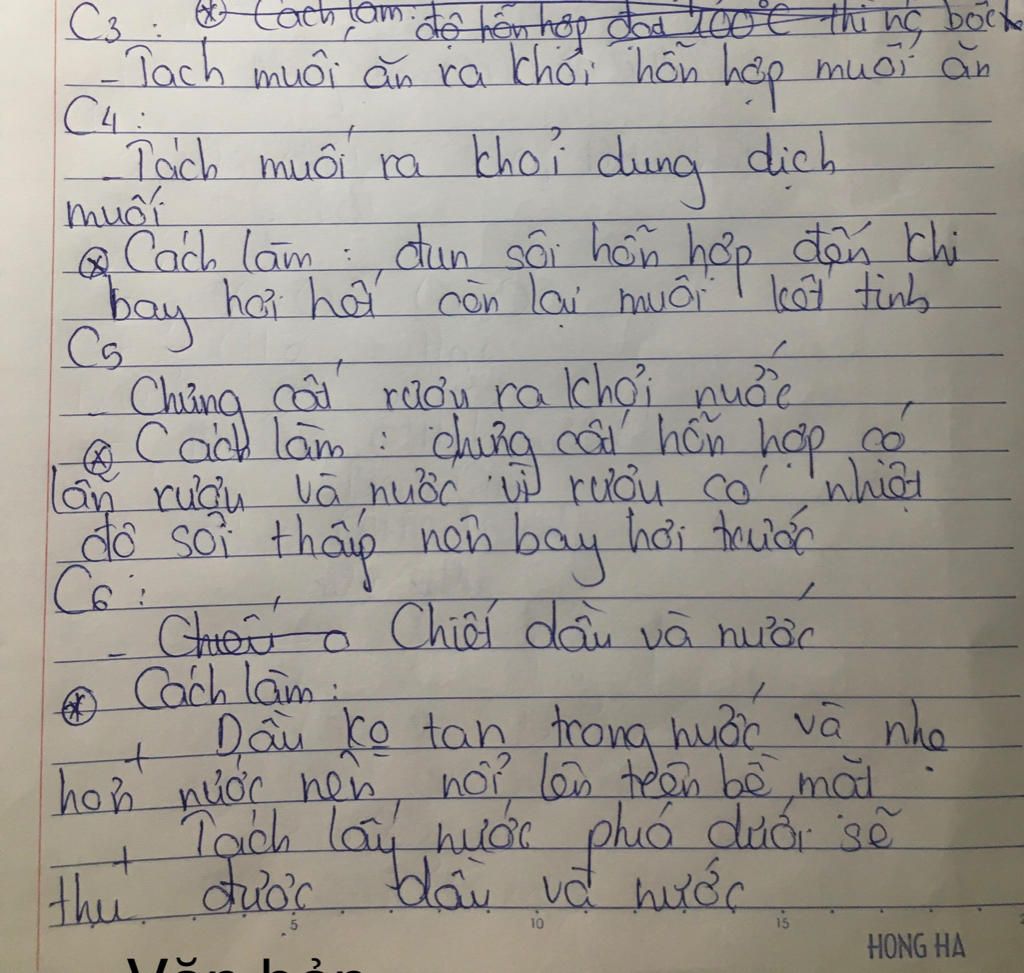 C3 : (*) Cách làm: độ hỗn hợp đạt 100°C thì nc bốc
- Tách muối ăn ra khỏi hỗn hợp muối ăn
C4 :
- Tách muối ra khỏi dung dịch
muối
(*) Cách làm : đun sôi hỗn hợp đến khi
bay hơi hết còn lại muối kết tinh
C5
- Chưng cất rượu ra khỏi nước
(*) Cách làm : chưng cất hỗn hợp có
lẫn rượu và nước vì rượu có nhiệt
độ sôi thấp nên bay hơi trước
C6 :
- Chiết dầu và nước
(*) Cách làm :
+ Dầu ko tan trong nước và nhẹ
hơn nước nên nổi lên trên bề mặt
+ Tách lấy nước phía dưới sẽ
thu được dầu và nước
5 10 15
HONG HA
Văn bản